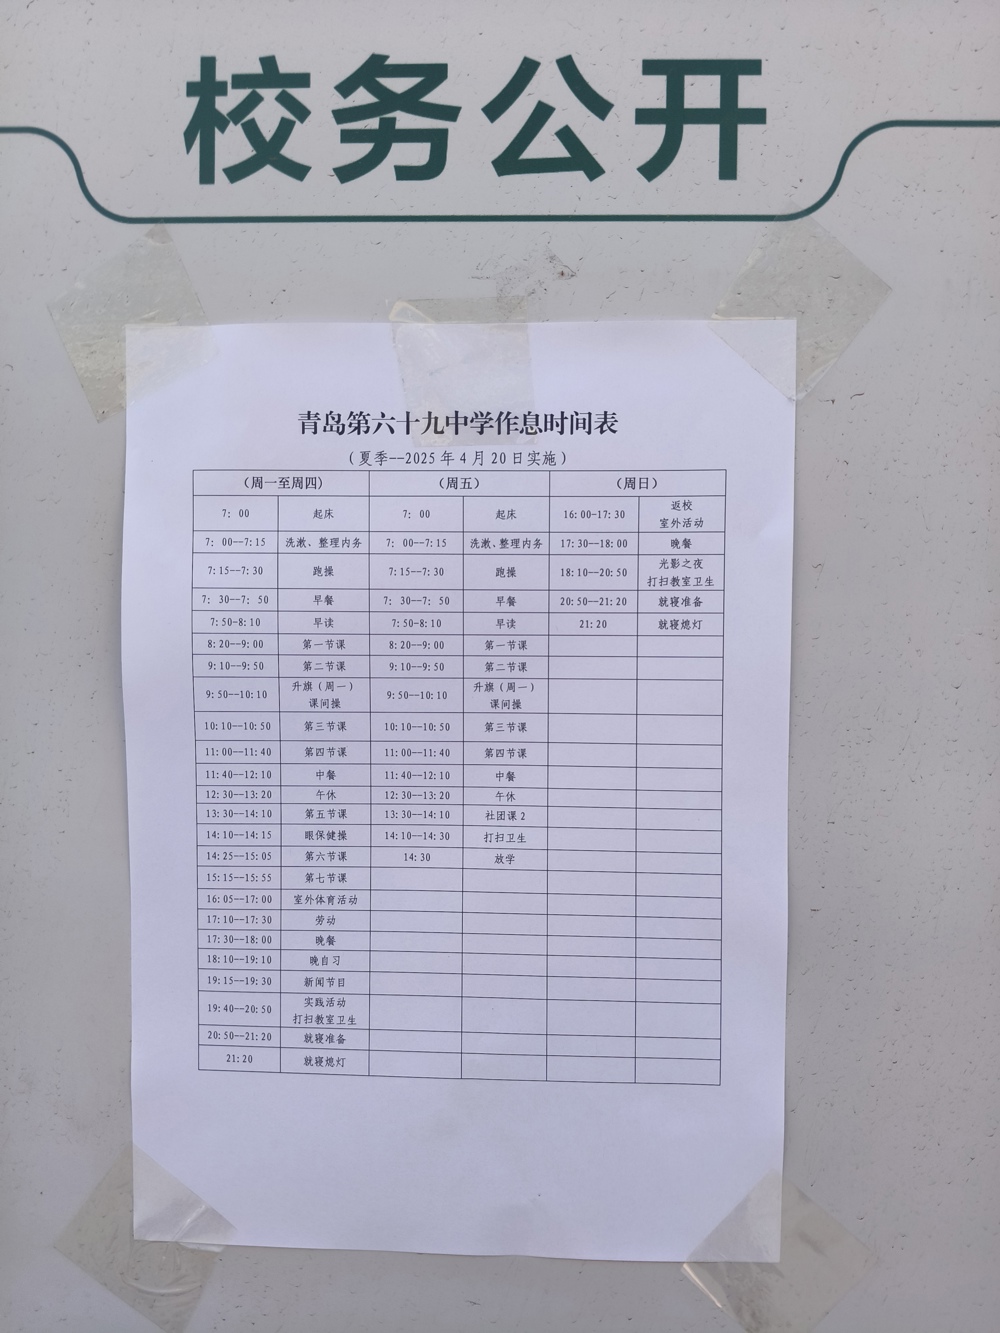 校务公开
青岛第六十九中学作息时间表
（夏季--2025年4月20日实施）
（周一至周四） （周五） （周日）
7：00 起床 7：00 起床 16:00-17:30 返校
室外活动
7：00--7:15 洗漱、整理内务 7：00--7:15 洗漱、整理内务 17:30--18:00 晚餐
7:15--7:30 跑操 7:15--7:30 跑操 18:10--20:50 光影之夜
打扫教室卫生
7：30--7：50 早餐 7：30--7：50 早餐 20:50--21:20 就寝准备
7:50-8:10 早读 7:50-8:10 早读 21:20 就寝熄灯
8:20--9:00 第一节课 8:20--9:00 第一节课
9:10--9:50 第二节课 9:10--9:50 第二节课
9:50--10:10 升旗（周一） 9:50--10:10 升旗（周一）
课间操 课间操
10:10--10:50 第三节课 10:10--10:50 第三节课
11:00--11:40 第四节课 11:00--11:40 第四节课
11:40--12:10 中餐 11:40--12:10 中餐
12:30--13:20 午休 12:30--13:20 午休
13:30--14:10 第五节课 13:30--14:10 社团课2
14:10--14:15 眼保健操 14:10--14:30 打扫卫生
14:25--15:05 第六节课 14:30 放学
15:15--15:55 第七节课
16:05--17:00 室外体育活动
17:10--17:30 劳动
17:30--18:00 晚餐
18:10--19:10 晚自习
19:15--19:30 新闻节目
19:40--20:50 实践活动
打扫教室卫生
20:50--21:20 就寝准备
21:20 就寝熄灯